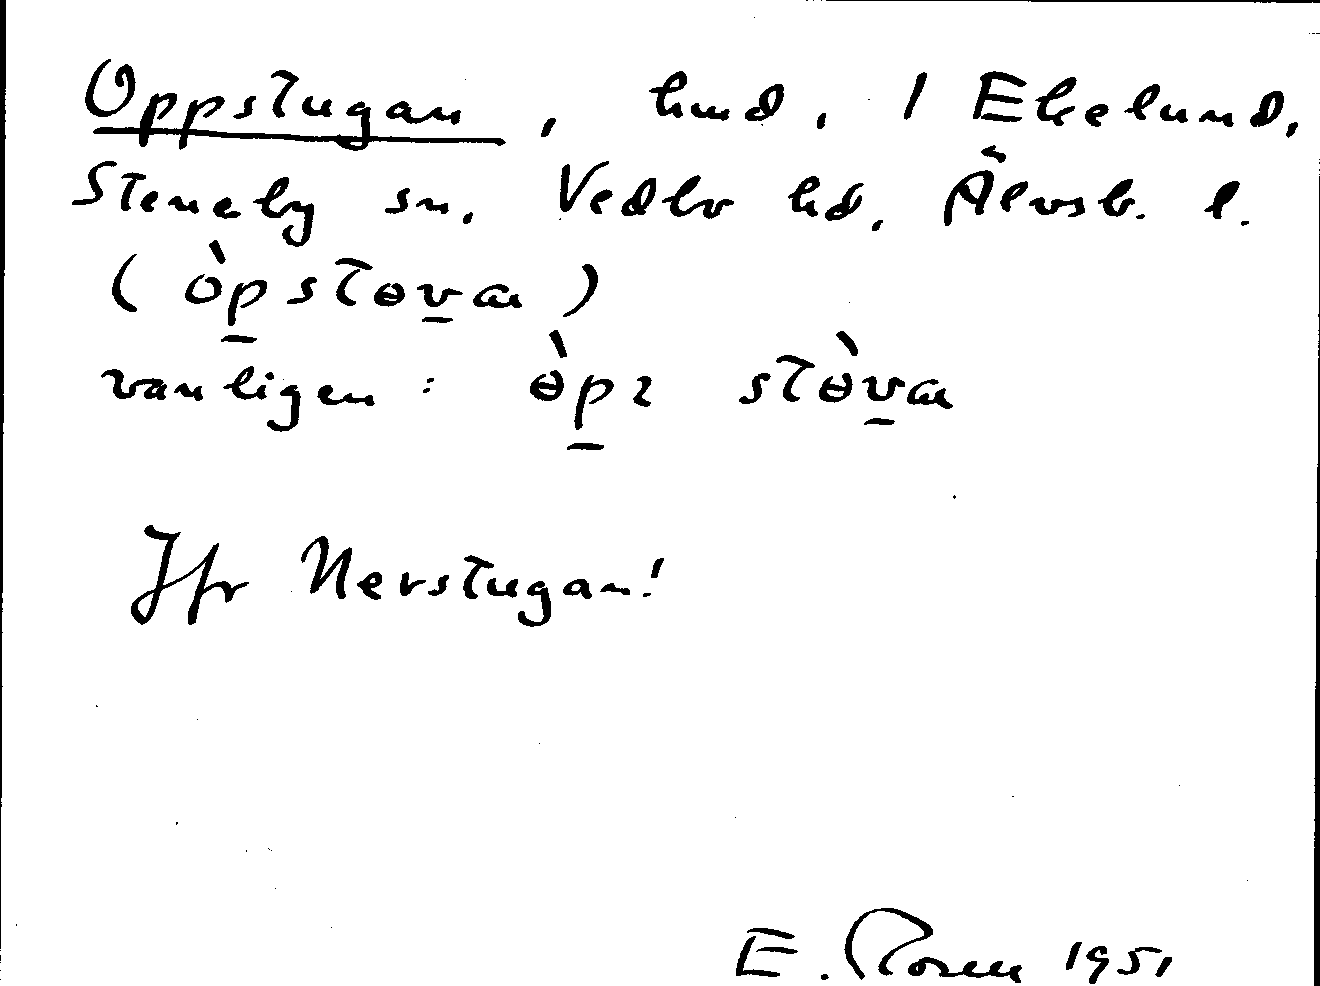 Oppstugan, hmd. 1 Ekelund,
Steneby sn. Vedbo hd, Älvsb. l.
(òpstɵvaı)
vanligen: ɵ̀pɩ stɵ̀vaı
Jfr Nerstugan!
E. Rosell 1951